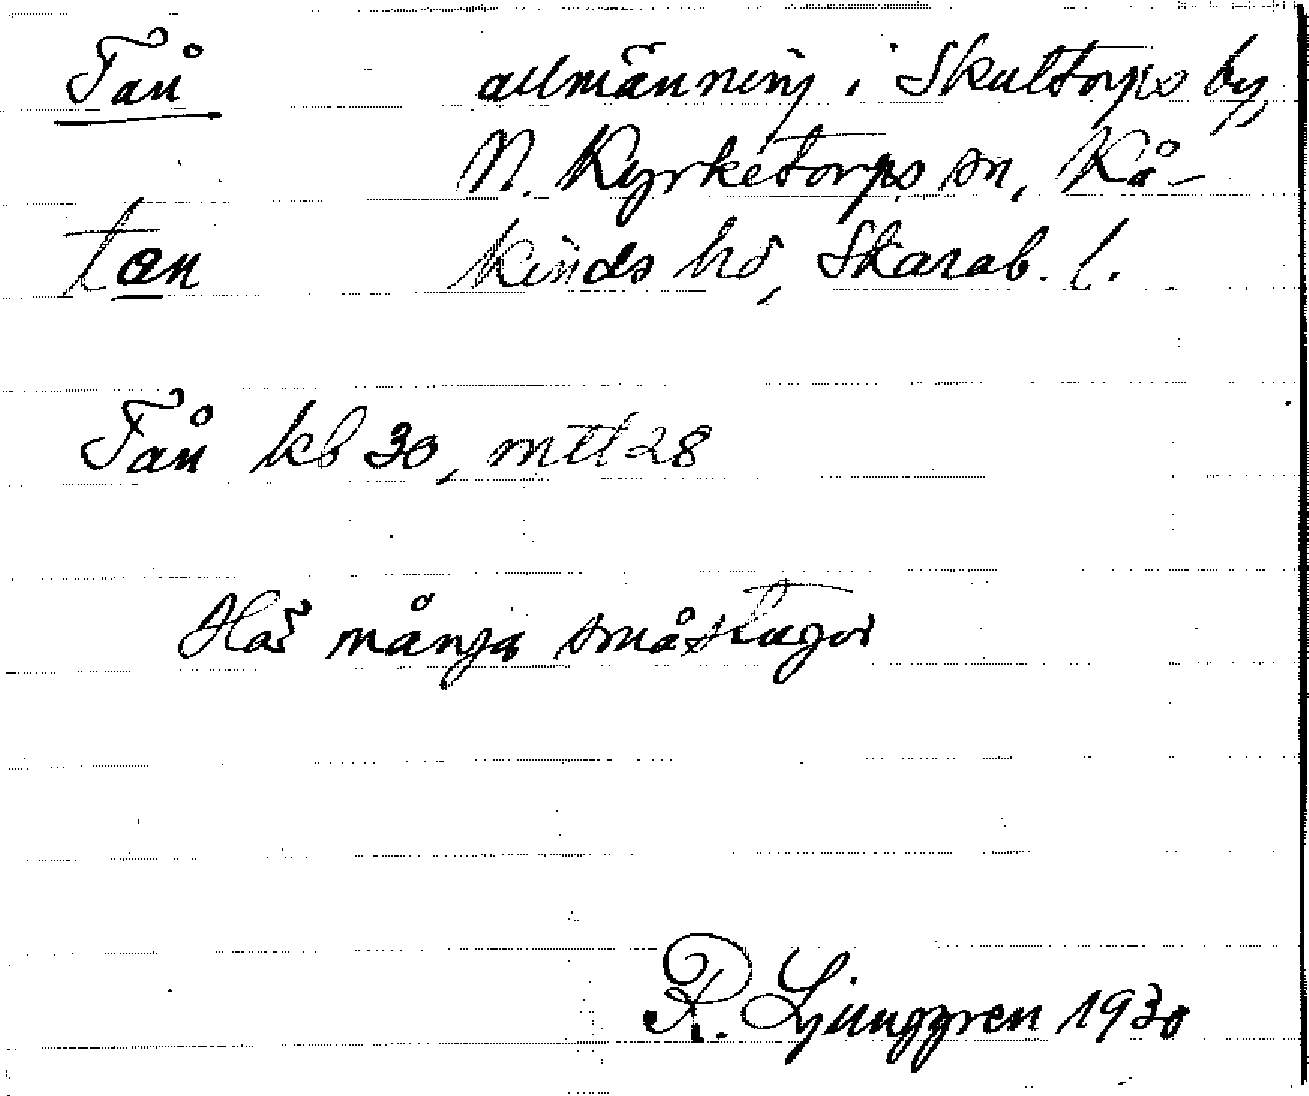 Tån allmänning i Skultorps by,
N. Kyrketorps sn, Kå-
tan kinds hd, Skarab. l.
Tån kb 30, mtl 28
Här många småstugor
R. Ljunggren 1930